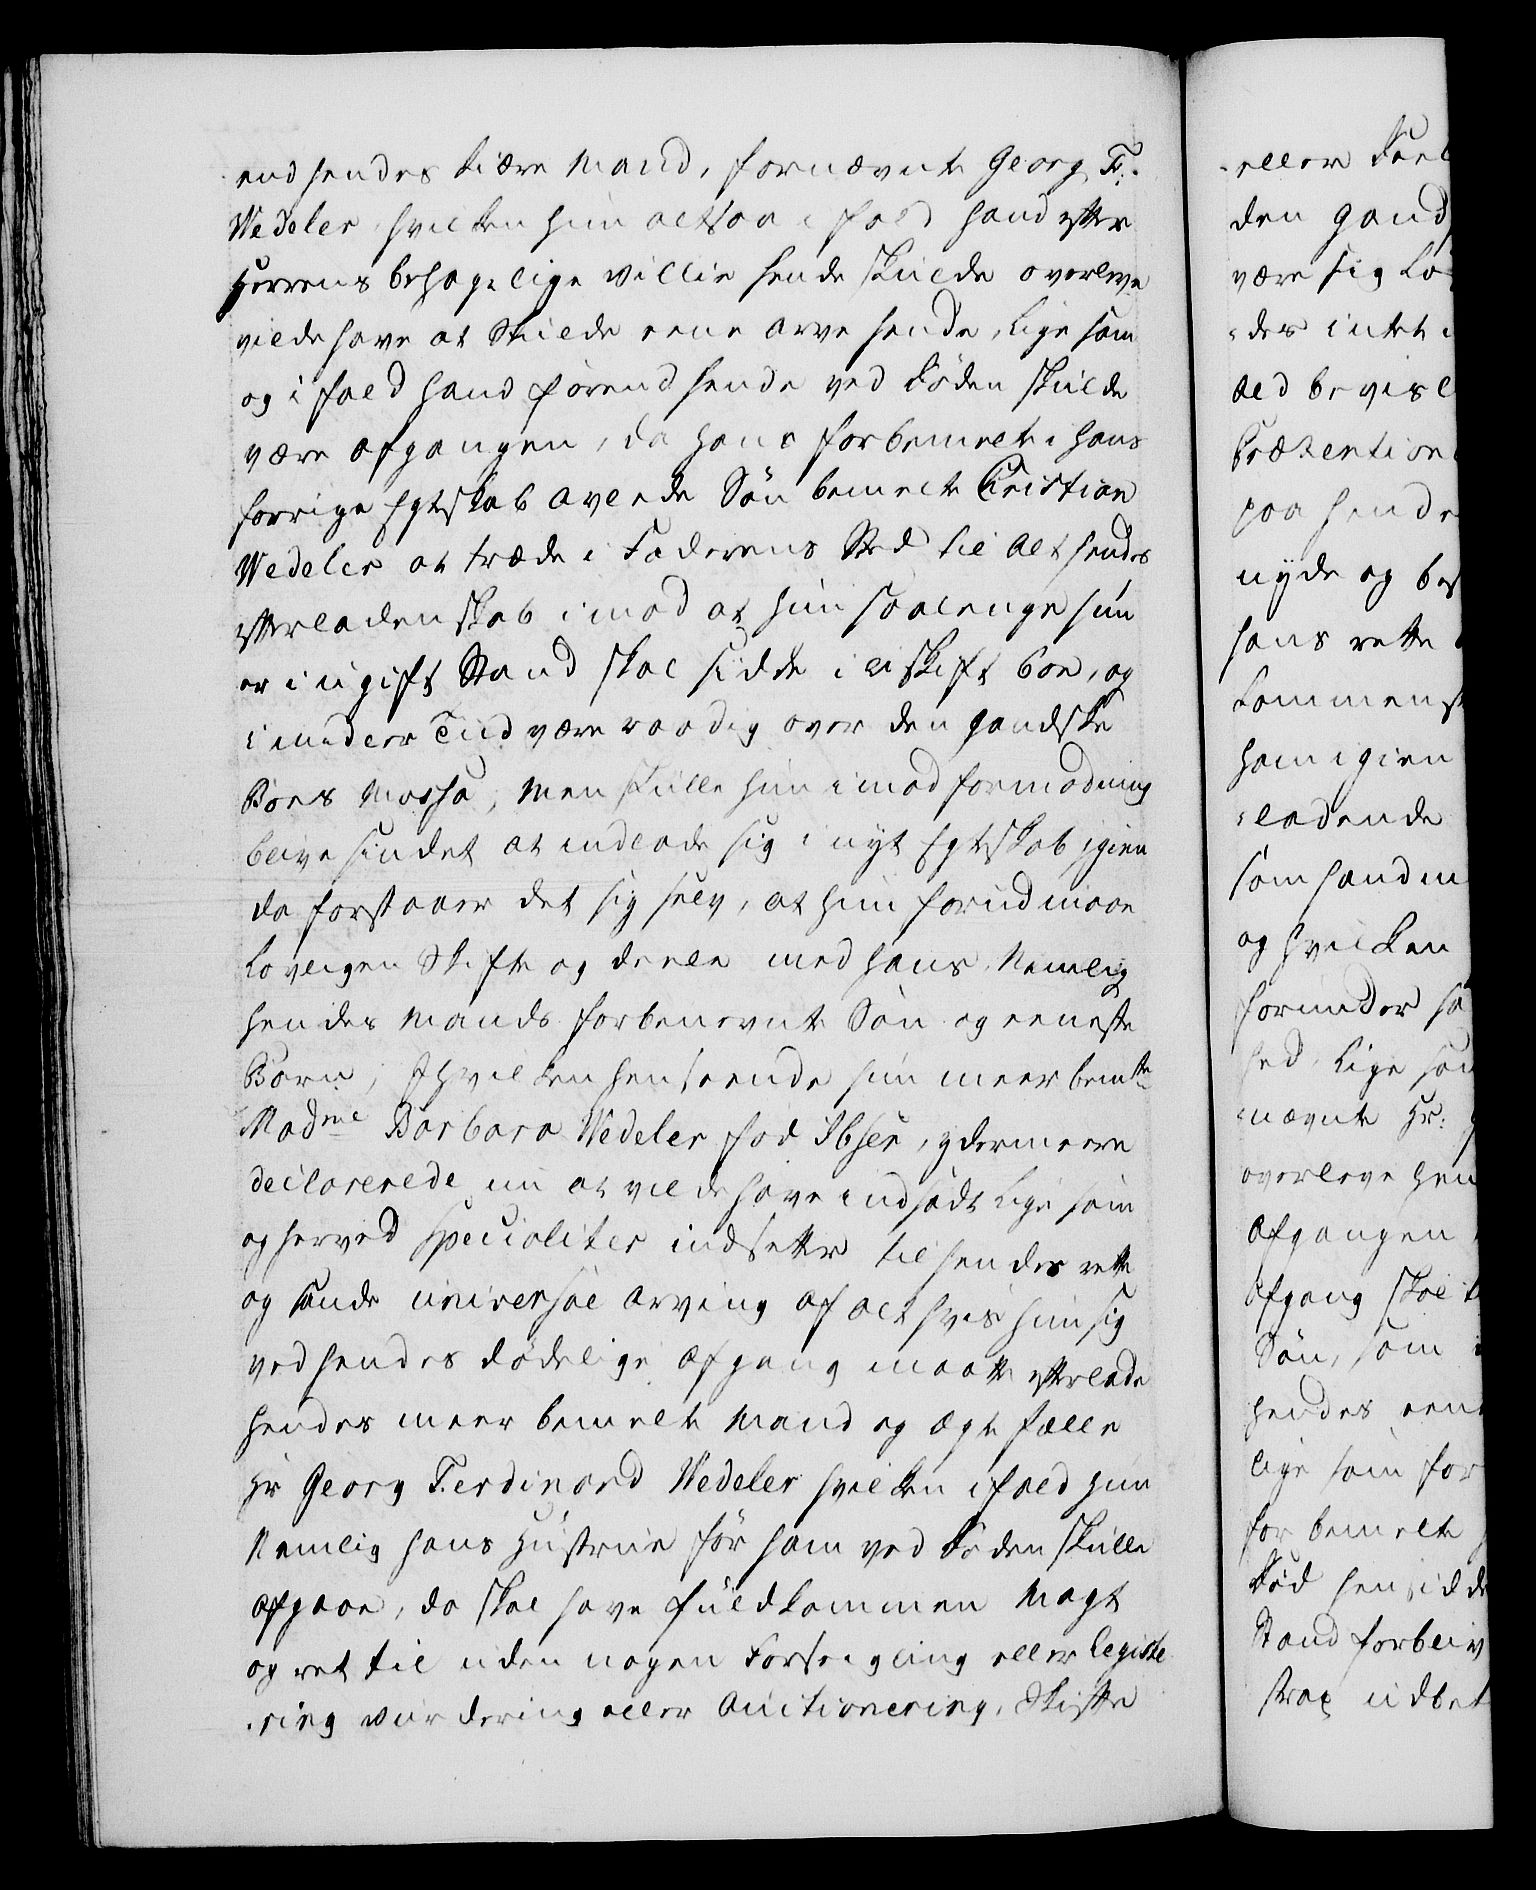 end hendes kiære Mand, fornævnte Georg F:
Wedeler hvilken hun altsaa i fald hand efter
Herrens behagelige Villie hende skulde overleve
vilde have at skulde eene arve hende, lige som
og i fald hand førend hende ved Døden skulde
være afgangen, da hans forbemelte i hans
forrige Egteskab avlede Søn bemelte Cristian
Wedeler at træde i Faderens Sted til alt hendes
efterladenskab imod at hun saalenge hun
er i ugift Stand skal sidde i uskift boe, og
imidler Tiid være raadig over den gandske
Boes Massa, Men skulle hun imod formodning
blive sindet at indlade sig i nyt Egteskab igien
da forstaaer det sig selv, at hun forud maae
lovligen Skifte og deele med hans, Nemlig
hendes Mands forbenevnte Søn og eeneste
Barn, I hvilken henseende hun meerbemte
Madme Barbara Wedeler fød Ibsen, ydermeere
declarerede nu at vilde have indsadt lige som
og herved specialiter indsetter til hendes rette
og sande universal arving af alt hvis hun sig
ved hendes dødelige afgang maatte efterlade
hendes meer bemelte Mand og ægte fælle
Hr Georg Ferdinard Wedeler hvilken i fald hun
Nemlig hans Hustrue før ham ved Døden skulle
afgaae, da skal have fuldkommen Magt
og ret til uden nogen Forseigling eller Registe
-ring vurdering eller Auctionering, Skifte
-eller Deel
den gand
være sig lo
-der intet
ald bevisl
Prætention
paa hende
nyde og bes
hans rette
kommenst
ham igien
-ladende
som hand m
og hvilken
forunder sa
hed, lige som
-nævnte Hr:
overleve hen
afgangen
afgang skal
Søn, som
hendes eene
lige som for
for bemelte
Død hensidde
Stand forbliv
strax udbet